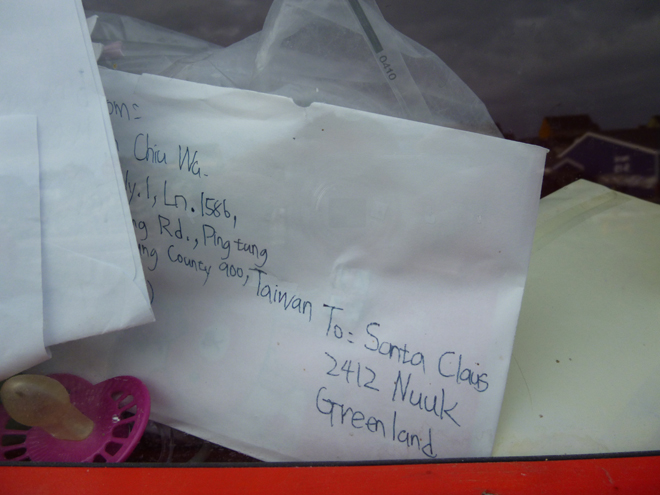 0410
om:
Chiu Wu.
ly. 1, Ln. 1586,
ng Rd., Pingtung
ung County 900, Taiwan
To: Santa Claus
2412 Nuuk
Greenland